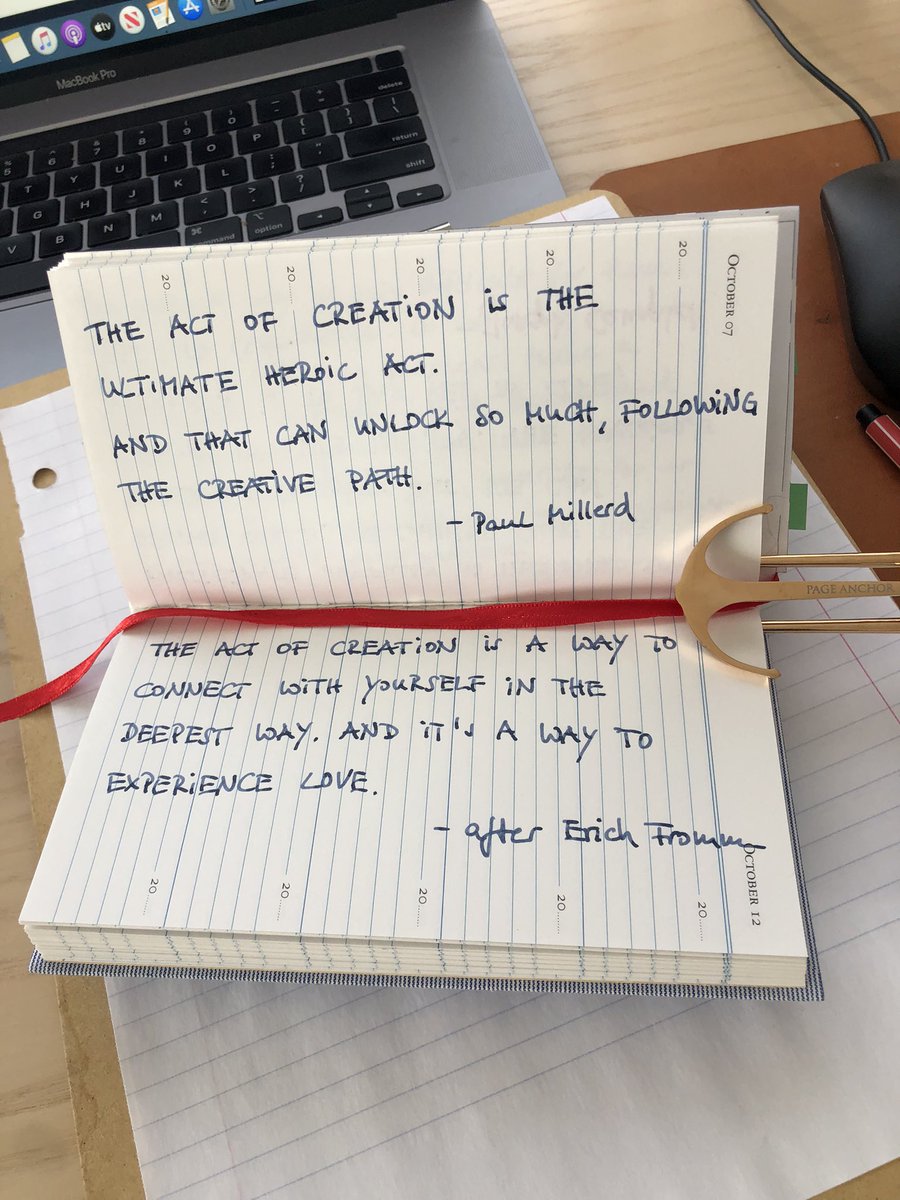 MacBook Pro
delete
return
shift
command
option
OCTOBER 07
20......
20......
20......
20......
20......
THE ACT OF CREATION IS THE
ULTIMATE HEROIC ACT.
AND THAT CAN UNLOCK SO MUCH, FOLLOWING
THE CREATIVE PATH.
- Paul Millerd
PAGE ANCHOR
THE ACT OF CREATION IS A WAY TO
CONNECT WITH YOURSELF IN THE
DEEPEST WAY. AND IT'S A WAY TO
EXPERIENCE LOVE.
- after Erich Fromm
OCTOBER 12
20......
20......
20......
20......
20......